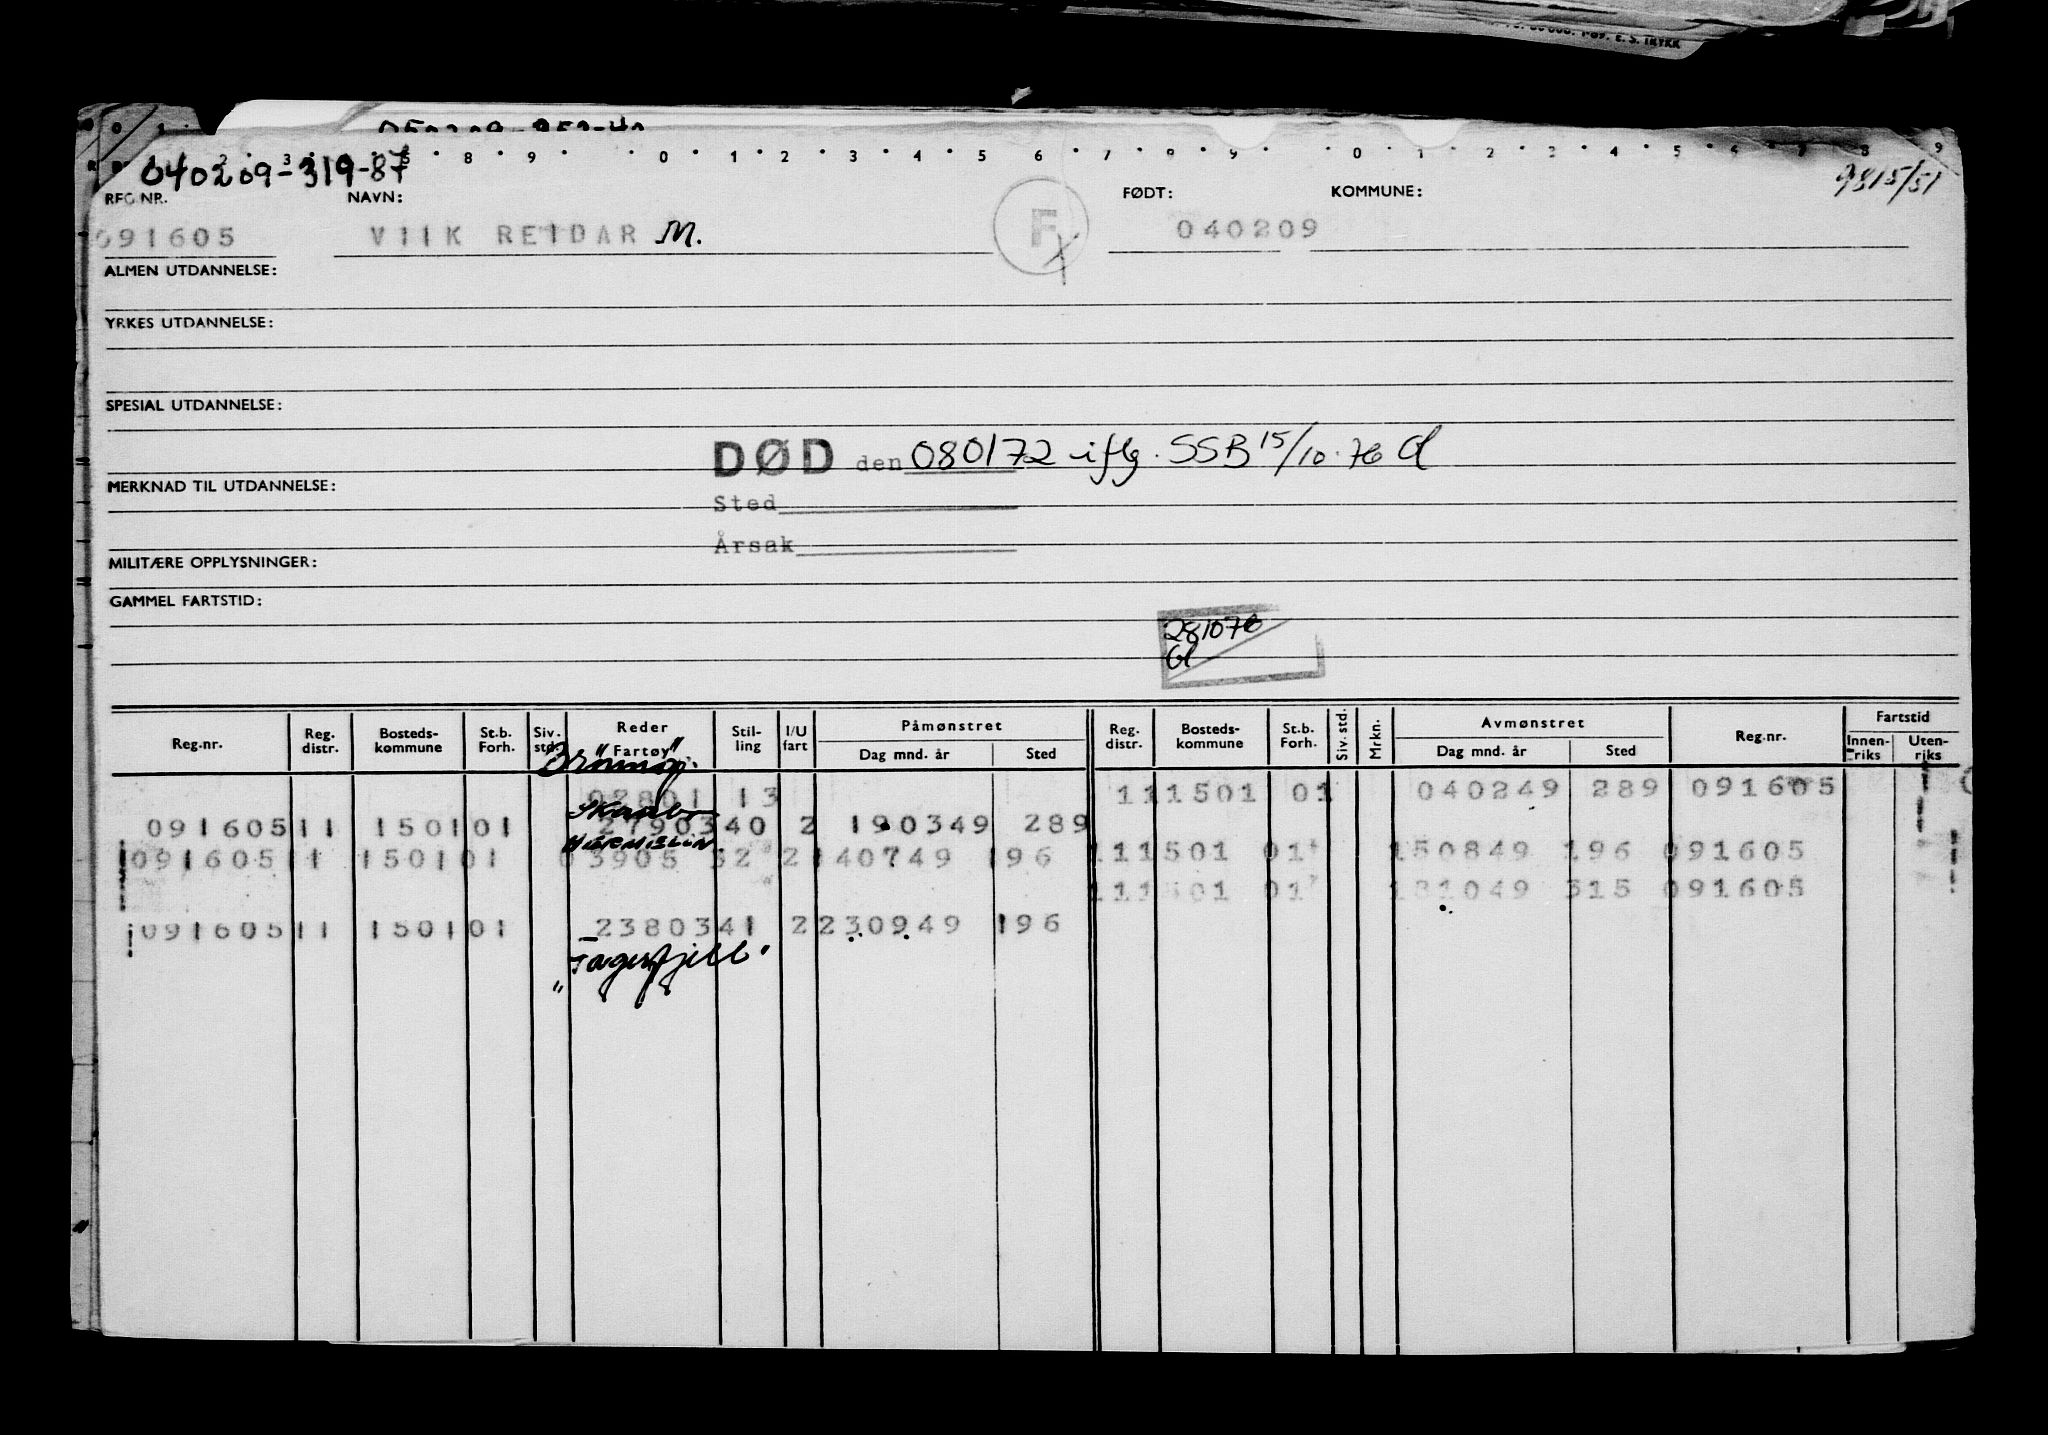 040209-319-87
9815/51
REG.NR. NAVN: FØDT: KOMMUNE:
091605 VIIK REIDAR M. F 040209
ALMEN UTDANNELSE:
YRKES UTDANNELSE:
SPESIAL UTDANNELSE:
DØD den 080172 iflg. SSB 15/10.76 Gl
MERKNAD TIL UTDANNELSE:
Sted
Årsak
MILITÆRE OPPLYSNINGER:
GAMMEL FARTSTID:
281076
Gl
Reg.nr. Reg. distr. Bosteds-kommune St.b. Forh. Siv. std. Reder "Fartøy" Stil-ling I/U fart Påmønstret Dag mnd. år Sted Reg. distr. Bosteds-kommune St.b. Forh. Siv. std. Mrkn. Avmønstret Dag mnd. år Sted Reg.nr. Fartstid Innen-riks Uten-riks
02801 13 11 1501 01 040249 289 091605
091605 11 1501 01 27903 40 2 190349 289
091605 11 1501 01 03905 52 2 140749 196 11 1501 01 150849 196 091605
11 1501 01 181049 315 091605
091605 11 1501 01 23803 41 2 230949 196
"Fagerfjell"